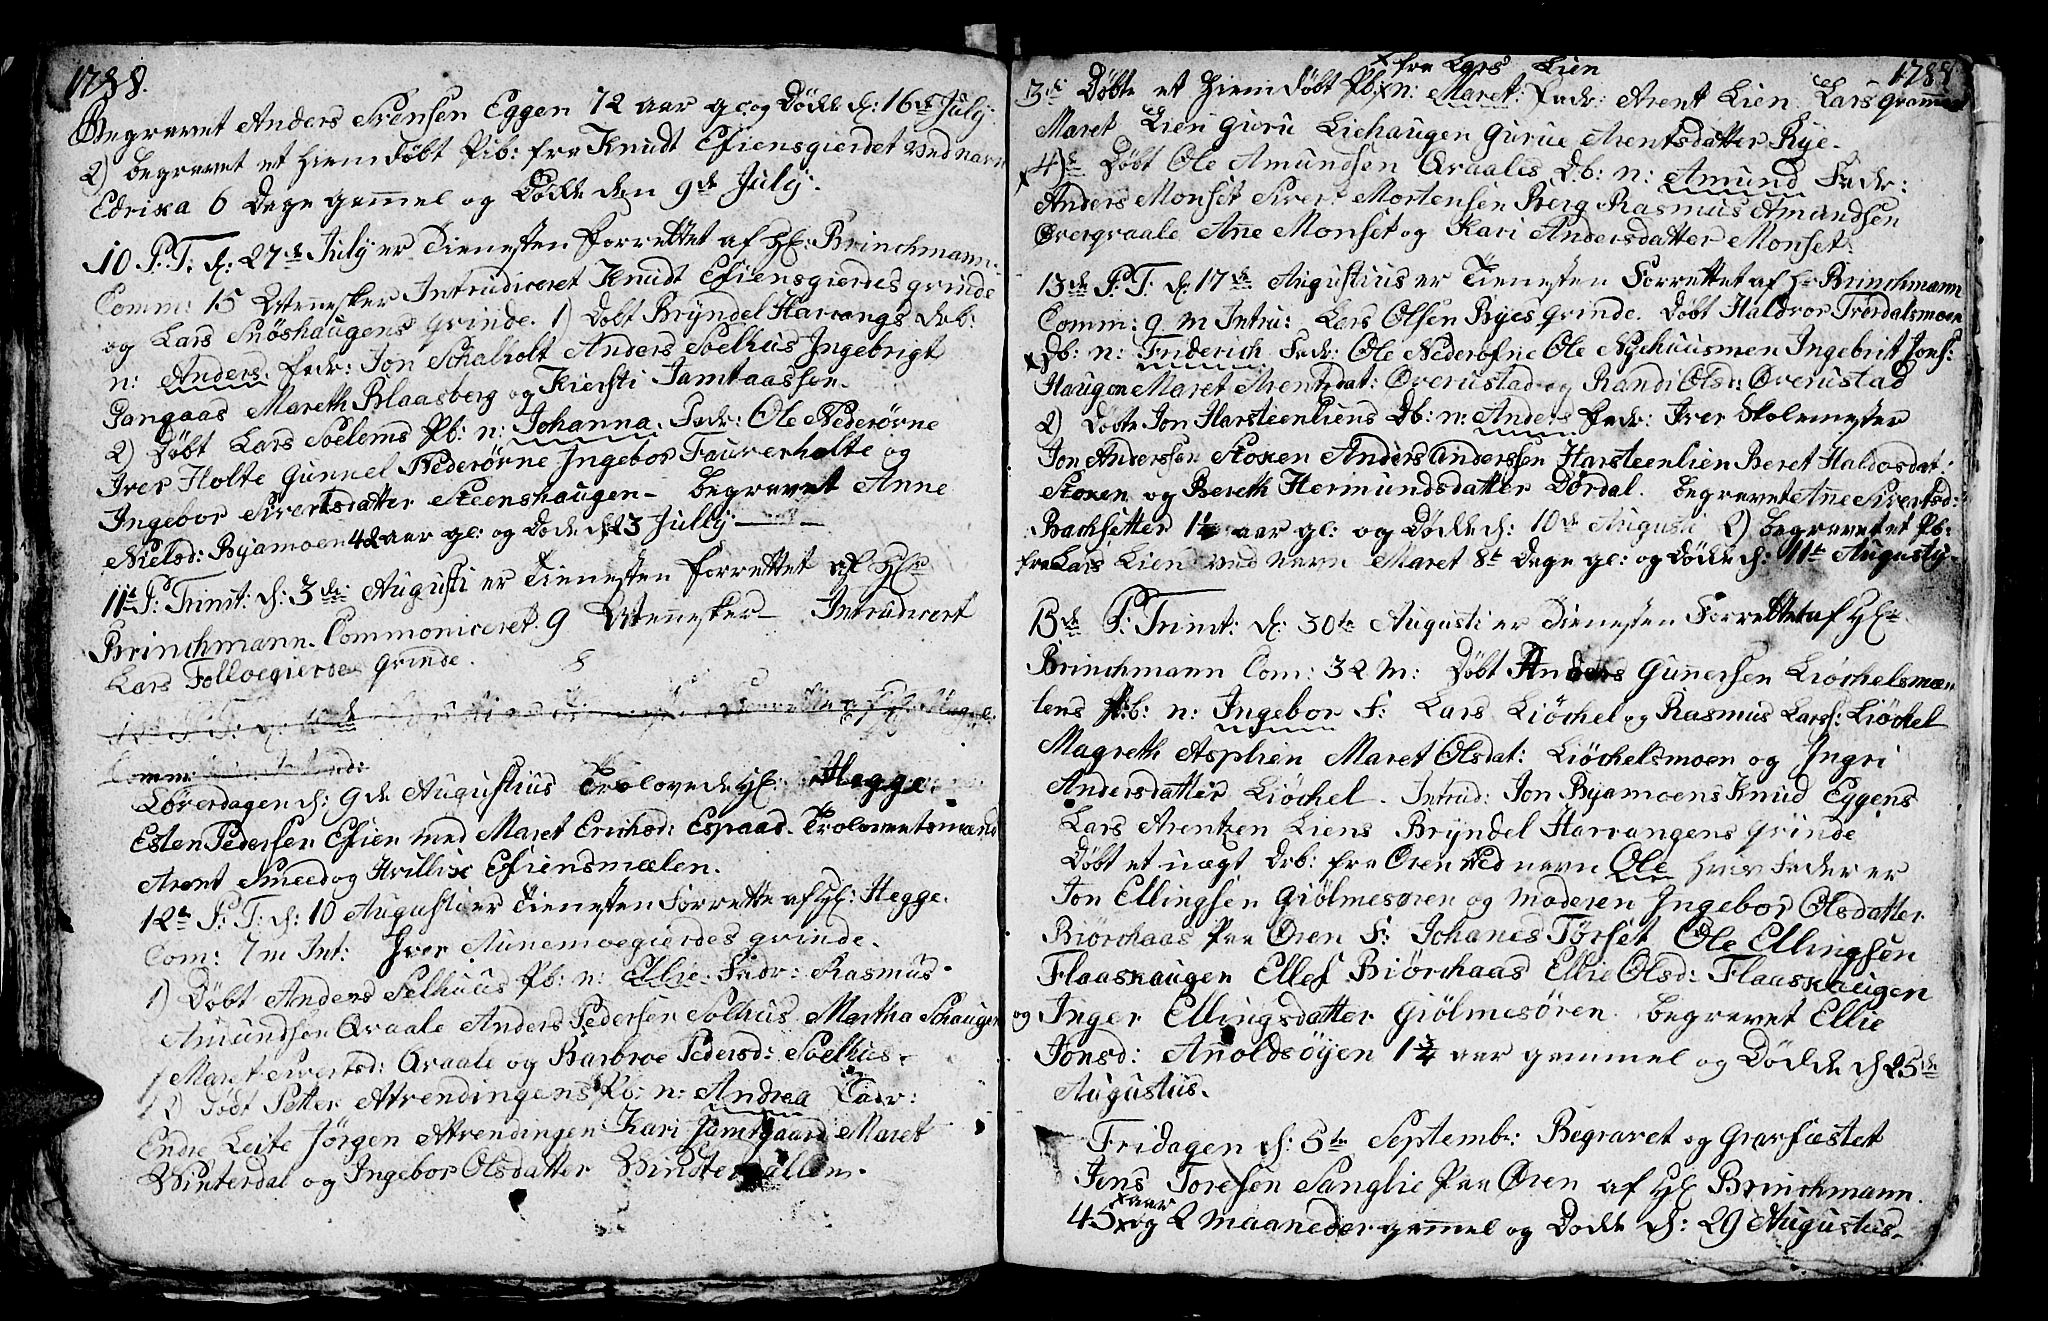 1788.
Begravet Anders Svensen Eggen 72 aar gl og Døde d: 16de July.
2) begravet et hiemdøbt Pib: fra Knudt Esiensgierdet ved navn
Edrixa 6 Dage gammel og Døde den 9de July.
10 P. T. d: 27de July er Tienesten forrettet af Hl: Brinchmann
Comm: 15 Mennesker Introduceret Knudt Esiensgierdes grinde
og Lars Snøshaugens grinde. 1) Døbt Bryndel Harrangs drb:
n: Anders. fadr: Jon Schalholt Anders Soelhus Ingebrigt
Gangaas Mareth Blaasberg og Kiersti Jamtaassen.
2) Døbt Lars Soelems Pb: n: Johanna. Fadr: Ole Nederørne
Iver Holte Gunnel Nederørne Ingebor Fauverholte og
Ingebor Sivertsdatter Steenshaugen – begravet Anne
Nielsd: Byamoen 42 aar gl: og Døde d: 23 July –
11te P: Trinit: d: 3de Augusti er Tienesten forrettet af Hl:
Brinchmann. Commoniceret 9 Mennesker – Introducert
Lars Folloegierdes grinde.
Comm:
Løverdagen d: 9de Augustius Trolovede Hl: Hegge.
Esten Pedersen Esien med Maret Erichsd: Espaas. Trolovetsmænd
Arent Smeed og Hvillix Esiensmælen.
12te P: T: d: 10 Augusti er Tienesten Forrette af Hl: Hegge.
Com: 7 m Int: Iver Aunemoegierdes grinde.
1) Døbt Anders Selhuus Pb: n: Ellie. Fadr: Rasmus
Amundsen Qraale Anders Pedersen Solhus Martha Schaugen
Maret Sivertsd: Qraale og Barbroe Pedersd: Soelhus.
2) Døbt Petter Mrendingens Pb: n: Andrea Fadr:
Endre Leite Jørgen Mrendingen Kari Jamtgaard Maret
Winterdal og Ingebor Olsdatter Windterdallen.
1788
fra Lars Lien
3de Døbt et hiemdøbt Pb: n: Maret: Fadr: Arent Lien Lars grammo
Maret Lien Guru Liehaugen Gurue Arentsdatter Rye.
4de Døbt Ole Amundsen Qraales Db: n: Amund Fadr:
Anders Monset Siver Mortensen Berg Rasmus Amundsen
Overqraale Ane Monset og Kari Andersdatter Monset.
13de P: T. d: 17de Augustius er Tienesten Forrettet af Hr Brinchmann
Comm: 9 m Intru: Lars Olsen Byes grinde. Døbt Haldvor Trørdalsmoen
Db: n: Friderich Fadr: Ole Nederøfne Ole Nyehuusmen Ingebrit Jons:
Haugen Maret Arentsdat: Overustad og Randi Olsd: Overustad
2) Døbte Jon Harsteenliens Db: n: Anders Fadr: Iver Skolemester
Jon Anderssen Stoxen Anders Anderssen Harsteenlien Beret Haldosdat:
Stoxen og Bereth Hermundsdatter Dørdal. begravet Ane Sivertsd:
Bachsetter 1½ aar gl: og Døde d: 10de Augusti 2) begravet et Pb:
fra Lars Lien ved navn Maret 8t Dage gl: og Døde d: 11te Augusty.
15de P: Trinit: d: 30te Augusti er Tienesten Forrettet af Hl:
Brinchmann Com: 32 m: Døbt Anders Gunersen Liøchelsmæ
lens Pb: n: Ingebor F: Lars Liøchel og Rasmus Larss: Liøchel
Magreth Asplien Maret Olsdat: Liøchelsmoen og Ingri
Andersdatter Liøchel. Introd: Jon Byamoens Knud Eggens
Lars Arentzen Liens Bryndel Harrangens grinde
Døbt et uægt Drb: fra Øren ved navn Ole hvis Fader er
Jon Ellingsen Giølmesøren og moderen Ingebor Olsdatter
Biørchaas Paa Øren F: Johanes Tørset Ole Ellingsen
Flaashaugen Ellef Biørchaas Ellie Olsd: Flaashaugen
og Inger Ellingsdatter Giølmesøren. begravet Ellie
Jonsd: Anoldsøyen 1¾ aar gammel og Døde d 25de
Augustus.
Fridagen d: 5te Septembr: Begravet og Gravfæstet
Jens Toresen Sanglie Paa Øren af Hl Brinchmann.
aar
45 og 2 maaneder gammel og Døde d: 29 Augustus.